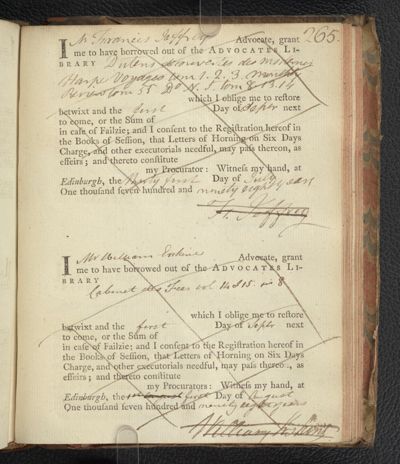 265.
I Mr Francis Jeffrey Advocate, grant
me to have borrowed out of the ADVOCATES LI-
BRARY Dutens découvertes des
Harpe Voyages tom 1. 2. 3. Monthly
Review tom 55. Do N. S. tom 8. 13. 14
which I oblige me to reſtore
betwixt and the first Day of Septr next
to come, or the Sum of
in caſe of Failzie; and I conſent to the Regiſtration hereof in
the Books of Seſſion, that Letters of Horning on Six Days
Charge, and other executorials needful, may paſs thereon, as
effeirs; and thereto conſtitute
my Procurator: Witneſs my hand, at
Edinburgh, the thirty first Day of July
One thouſand ſeven hundred and ninety eight years
Fr. Jeffrey
I Mr William Erskine Advocate, grant
me to have borrowed out of the ADVOCATES LI-
BRARY
Cabinet des Fees vol. 14 & 15. in 8
which I oblige me to reſtore
betwixt and the first Day of Septr next
to come, or the Sum of
in caſe of Failzie; and I conſent to the Regiſtration hereof in
the Books of Seſſion, that Letters of Horning on Six Days
Charge, and other executorials needful, may paſs thereon, as
effeirs; and thereto conſtitute
my Procurators: Witneſs my hand, at
Edinburgh, the first Day of August
One thouſand ſeven hundred and ninety eight years
William Erskine